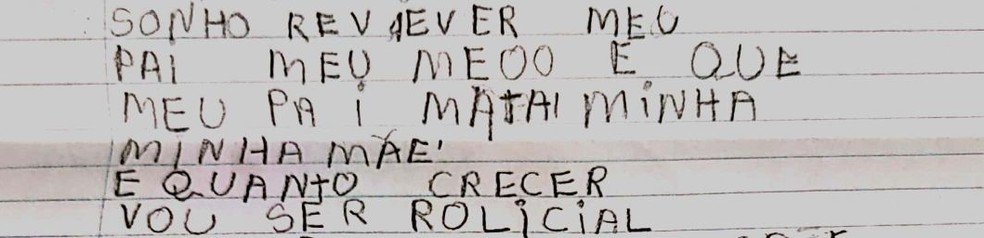 SONHO REVAEVER MEU
PAI MEU MEOO E QUE
MEU PAI MATAI MINHA
MINHA MÃE'
E QUANTO CRECER
VOU SER ROLICIAL